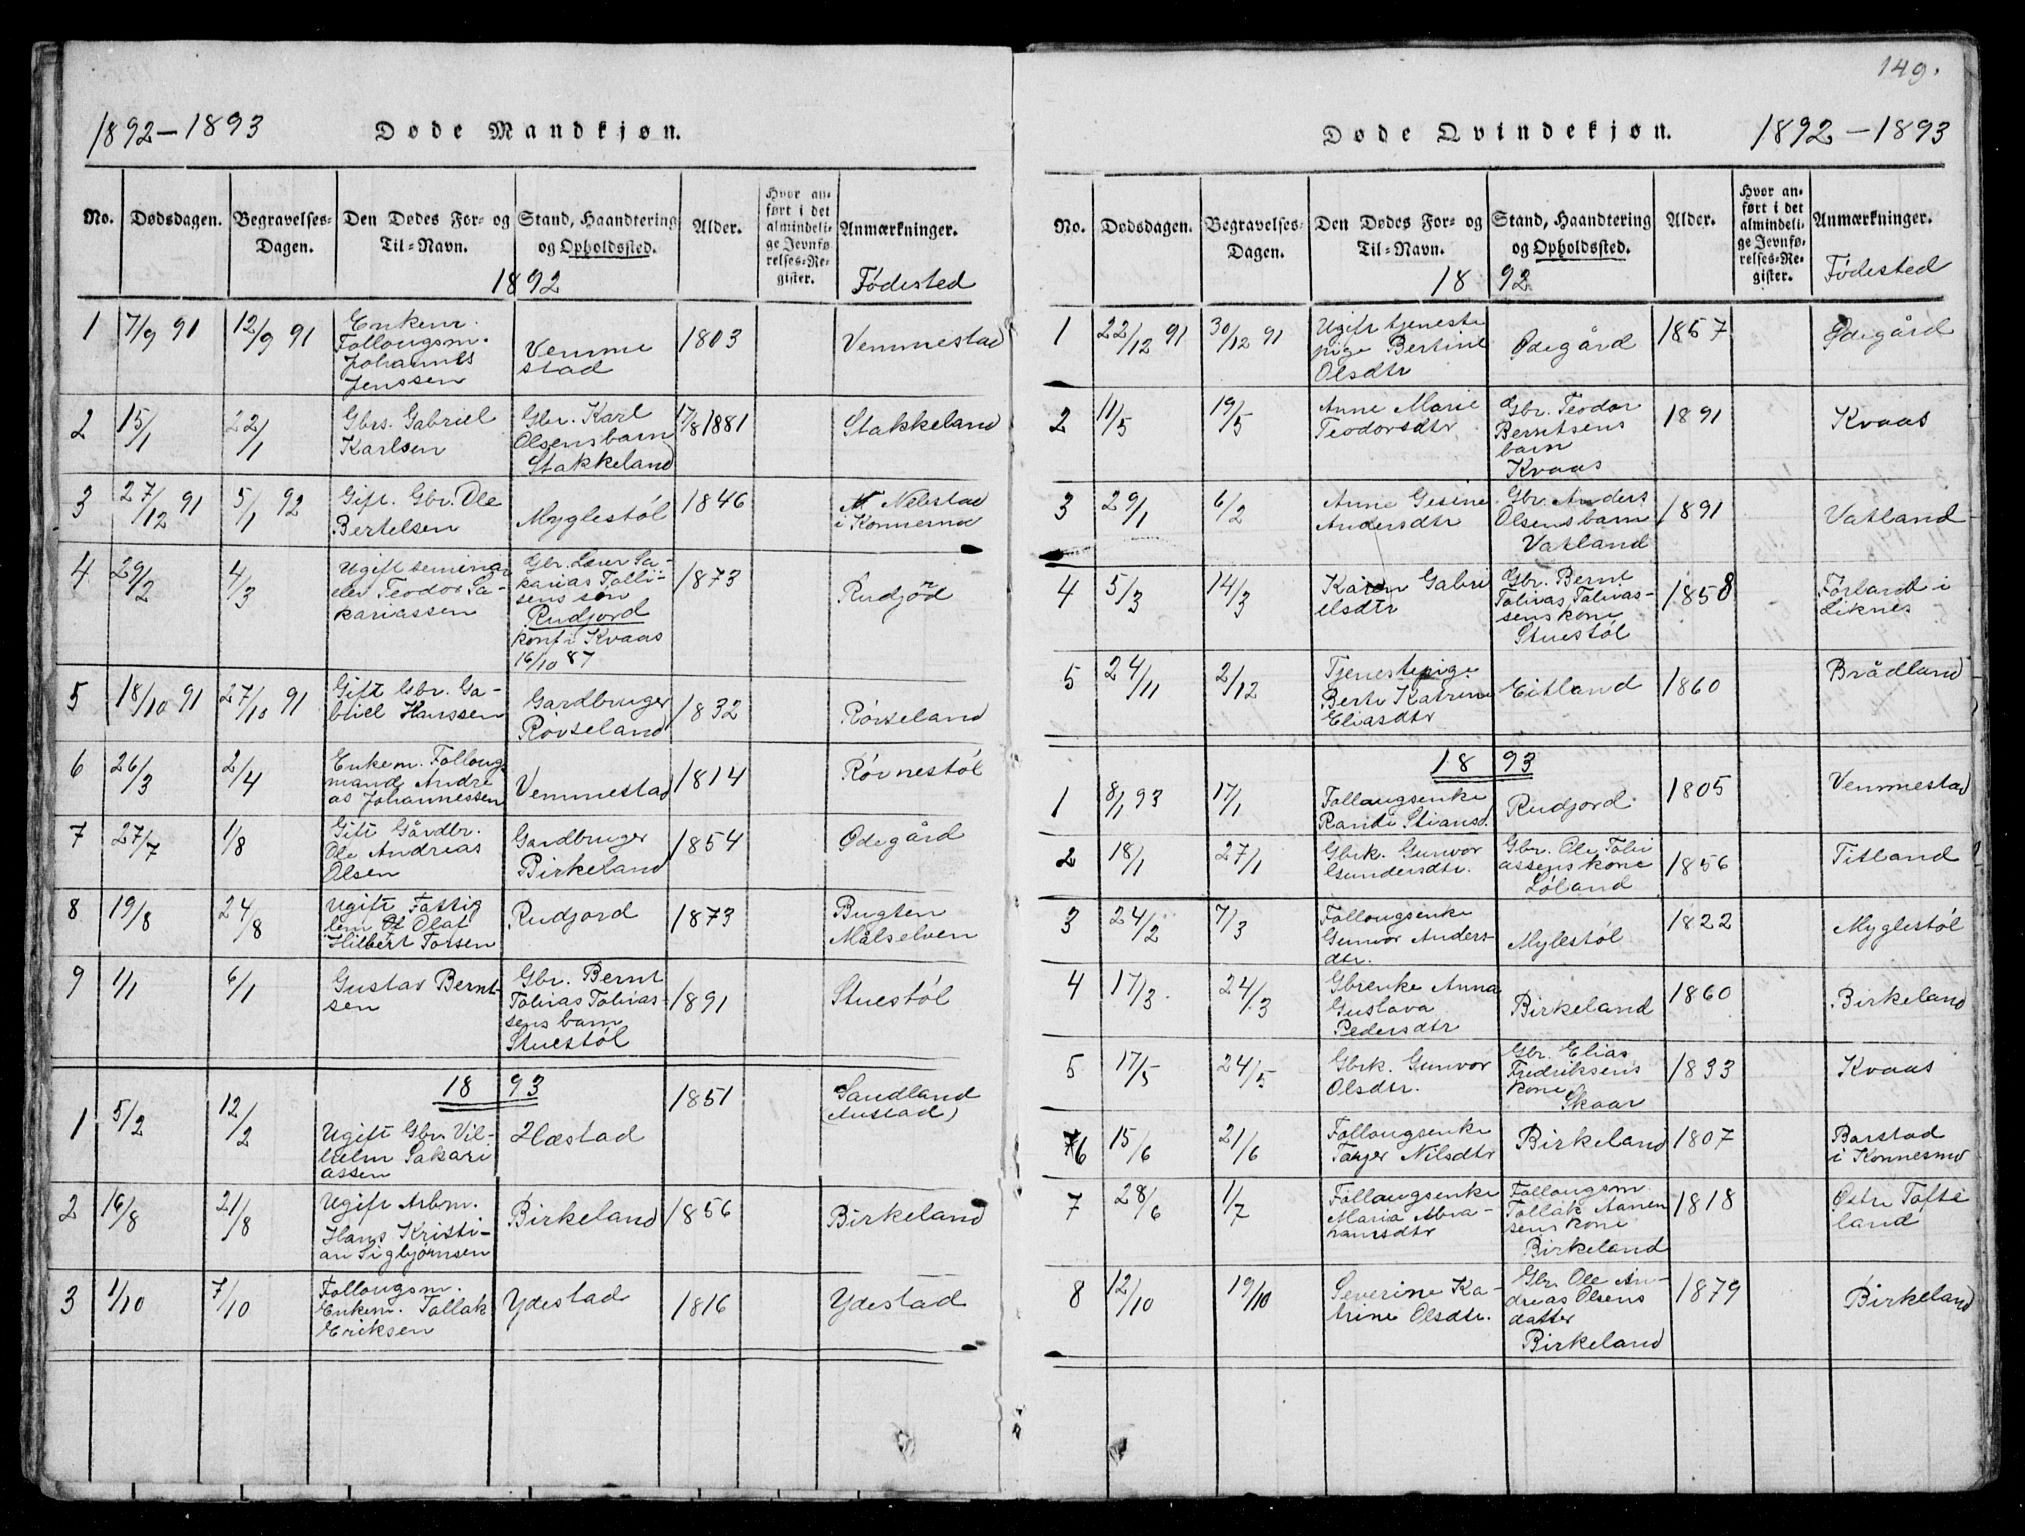 1892–1893
Døde Mandkjøn.
No.
Dødsdagen.
Begravelses-
Dagen.
Den Dødes For- og
Til-Navn.
Stand, Haandtering
og Opholdssted.
Alder.
Hvor an-
ført i det
almindeli-
ge Jevnfø
relses-Re-
gister.
Anmærkninger.
Fødested
1892
1 7/9 91 12/9 91
Enkem.
Follougsm.
Johannes
Jenssen
Vemme
stad
1803
Vemmestad
2 15/1 22/1
Gbrs. Gabriel
Karlsen
Gbr. Karl
Olsens barn
Stakkeland
17/8 1881
Stakkeland
3 27/12 91 5/1 92
Gift. Gbr. Ole
Bertelsen
Myglestøl
1846
Nølestad
i Konnesmo
4 29/2 4/3
Ugift seminar
elev Teodor Sa-
kariassen
Gbr. Lærer Sa-
karias Tolli-
sens søn
Rudjord
konf i Kvaas
16/10 87
1873
Rudjord
5 18/10 91 27/10 91
Gift Gbr. Ga-
briel Hanssen
Gardbruger
Røyseland
1832
Røyseland
6 26/3 2/4
Enkem. Folloug
mand Andre
as Johannessen
Vemmestad
1814
Røvnestøl
7 27/7 1/8
Gift Gårdbr.
Ole Andreas
Olsen
Gardbruger
Birkeland
1854
Ødegård
8 19/8 24/8
Ugift Fattig
lem Olaf
Hilbert Torsen
Rudjord
1873
Bugten
Målselven
9 1/1 6/1
Gustav Bernt-
sen
Gbr. Bernt
Tobias Tobias-
sens barn
Stuestøl
1891
Stuestøl
1893
1 5/2 12/2
Ugift Gbr. Vil-
helm Sakari
assen
Hæstad
1851
Sandland
(Austad)
2 16/8 21/8
Ugift Arbm.
Hans Kristi-
an Sigbjørnsen
Birkeland
1856
Birkeland
3 1/10 7/10
Follougsm.
Enkem. Tallak
Eriksen
Ydestad
1816
Ydestad
149.
Døde Qvindekjøn.
1892–1893
No.
Dødsdagen.
Begravelses-
Dagen.
Den Dødes For- og
Til-Navn.
Stand, Haandtering
og Opholdssted.
Alder.
Hvor an-
ført i det
almindeli-
ge Jevnfø-
relses-Re-
gister.
Anmærkninger.
Fødested
1892
1 22/12 91 30/12 91
Ugift tjeneste
pige Bertine
Olsdtr
Ødegård
1857
Ødegård
2 11/5 19/5
Anne Marie
Teodorsdtr
Gbr. Teodor
Berntsens
barn
Kvaas
1891
Kvaas
3 29/1 6/2
Anne Gesine
Andersdtr
Gbr. Anders
Olsens barn
Vatland
1891
Vatland
4 5/3 14/3
Karen Gabri
elsdtr
Gbr. Bernt
Tobias Tobias-
sens kone
Stuestøl
1858
Førland i
Liknes
5 24/11 2/12
Tjenestepige
Berte Katrine
Eliasdtr
Eitland
1860
Brådland
1893
1 8/1 93 17/1
Follaugsenke
Randi Stiansd.
Rudjord
1805
Vemmestad
2 18/1 27/1
Gbrk. Gunvor
Gundersdtr.
Gbr. Ole Tobi
assens kone
Løland
1856
Titland
3 24/2 7/3
Follougsenke
Gunvor Anders-
dtr.
Mylestøl
1822
Myglestøl
4 17/3 24/3
Gbrenke Anna
Gustava
Pedersdtr
Birkeland
1860
Birkeland
5 17/5 24/5
Gbrk. Gunvor
Olsdtr.
Gbr. Elias
Fredriksens
kone
Skaar
1833
Kvaas
6 15/6 21/6
Follougsenke
Tanger Nilsdtr
Birkeland
1807
Barstad
i Konnesmo
7 28/6 1/7
Follaugsenke
Maria Abra-
hamsdtr
Follougsm.
Tollak Aanen
sens kone
Birkeland
1818
Østre Tofte
land
8 12/10 19/10
Severine Ka-
trine Olsdtr.
Gbr. Ole An-
dreas Olsens
datter
Birkeland
1879
Birkeland